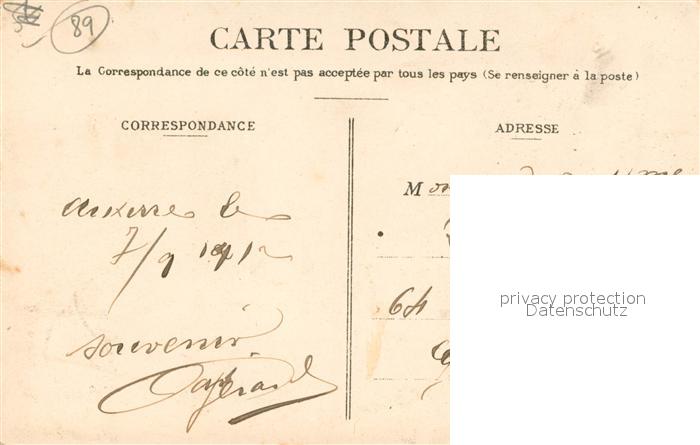 89
CARTE POSTALE
La Correspondance de ce côté n'est pas acceptée par tous les pays (Se renseigner à la poste)
CORRESPONDANCE
ADRESSE
Auxerre le
7/9 1912
souvenir
M
64
privacy protection
Datenschutz